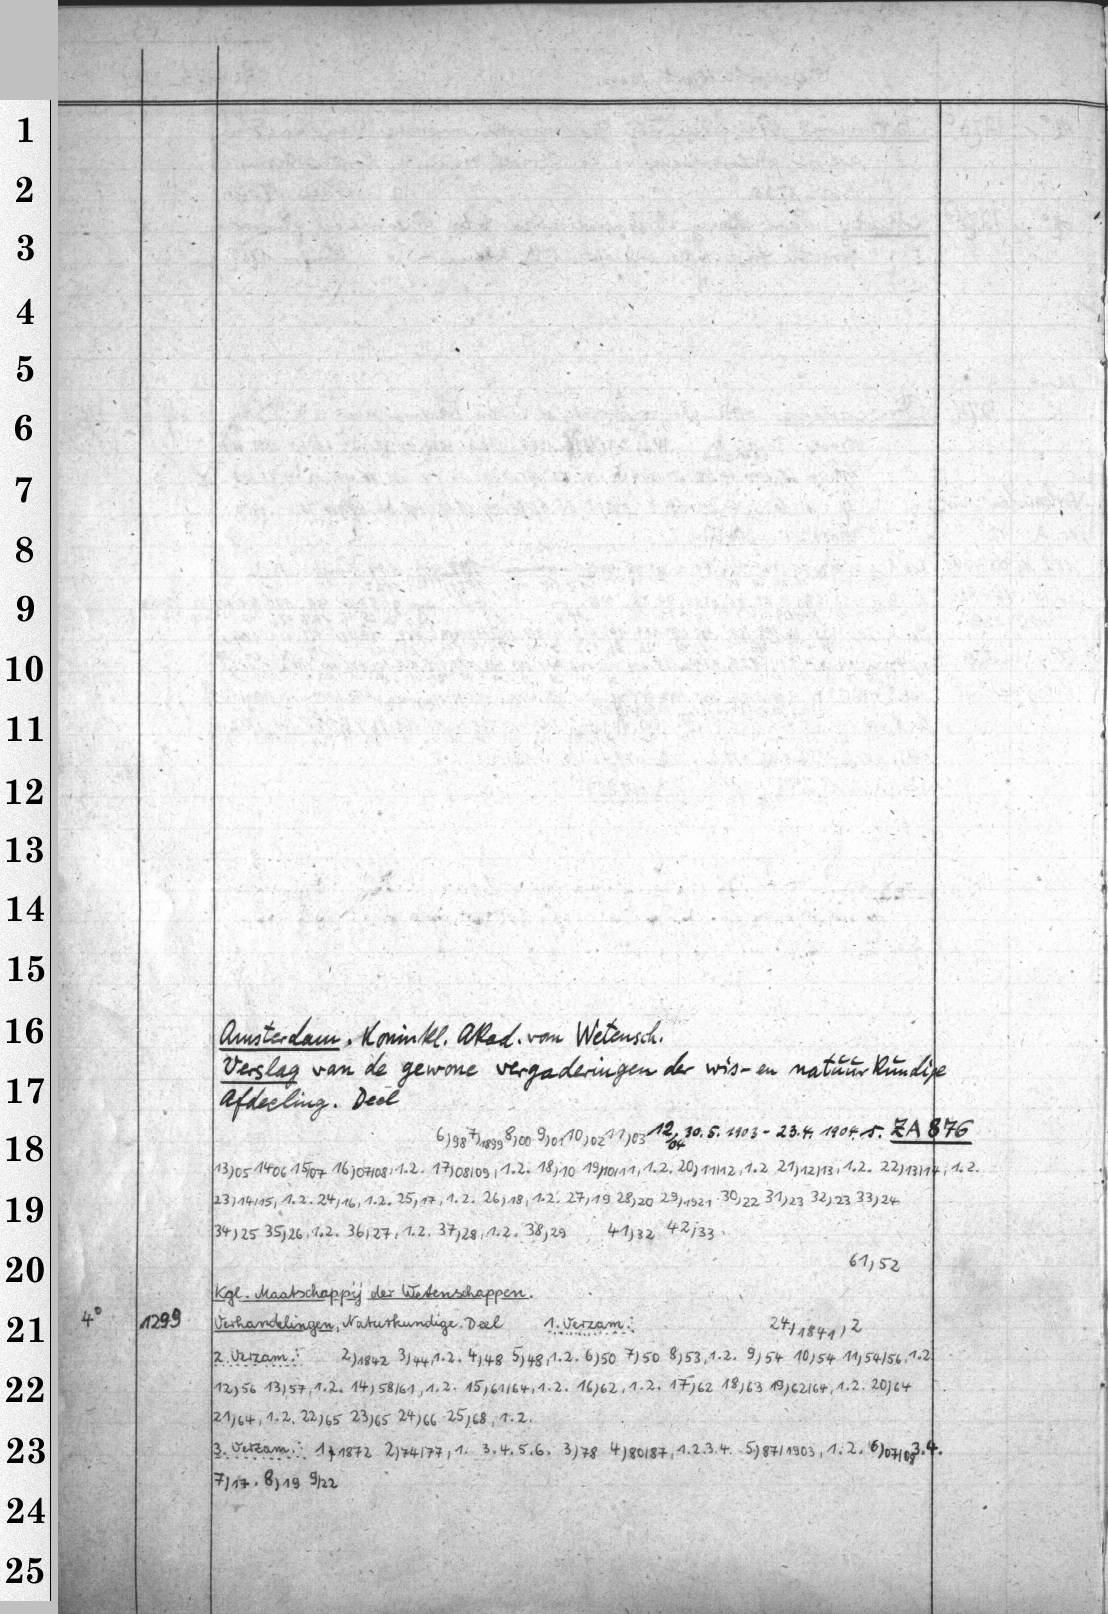 1
2
3
4
5
6
7
8
9
10
11
12
13
14
15
16
17
18
19
20
21
22
23
24
25
Amsterdam. Koninkl. Akad. van Wetensch.
Verslag van de gewone vergaderingen der wis- en natuurkundige
Afdeeling. Deel
6,98 7,1899 8,00 9,01 10,02 11,03 12,04 30.5.1903 - 23.4.1904. ZA 876
13,05 14,06 15,07 16,07/08,1.2. 17,08/09,1.2. 18,10 19,10/11,1.2. 20,11/12,1.2 21,12/13,1.2. 22,13/14,1.2.
23,14/15,1.2. 24,16,1.2. 25,17,1.2. 26,18,1.2. 27,19 28,20 29,1921 30,22 31,23 32,23 33,24
34,25 35,26,1.2. 36,27,1.2. 37,28,1.2. 38,29 41,32 42,33.
61,52
Kgl. Maatschappij der Wetenschappen.
4° 1299 Verhandelingen, Naturkundige. Deel 1. Verzam.: 24,1841,2
2. Verzam.: 2,1842 3,44,1.2. 4,48 5,48,1.2. 6,50 7,50 8,53,1.2. 9,54 10,54 11,54/56,1.2
12,56 13,57,1.2. 14,58/61,1.2. 15,61/64,1.2. 16,62,1.2. 17,62 18,63 19,62/64,1.2. 20,64
21,64,1.2. 22,65 23,65 24,66 25,68,1.2.
3. Verzam.: 1,1872 2,74/77,1. 3.4.5.6. 3,78 4,80/87,1.2.3.4. 5,87/1903,1.2. 6,07/09 3.4.
7,17. 8,19 9,22